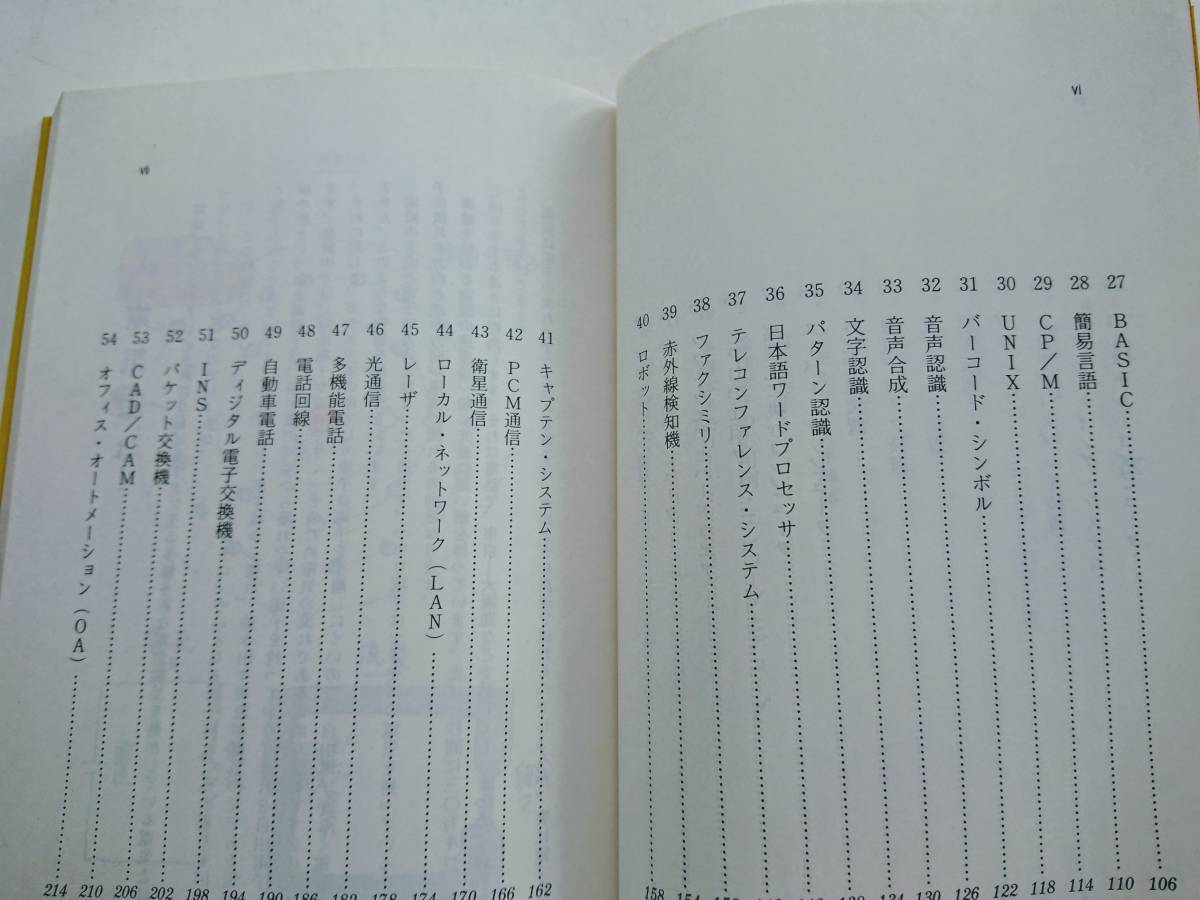 vi
27 BASIC 106
28 簡易言語 110
29 CP／M 114
30 UNIX 118
31 バーコード・シンボル 122
32 音声認識 126
33 音声合成 130
34 文字認識 134
35 パターン認識 138
36 日本語ワードプロセッサ 142
37 テレコンファレンス・システム 146
38 ファクシミリ 150
39 赤外線検知機 154
40 ロボット 158
vii
41 キャプテン・システム 162
42 PCM通信 166
43 衛星通信 170
44 ローカル・ネットワーク（LAN） 174
45 レーザ 178
46 光通信 182
47 多機能電話 186
48 電話回線 190
49 自動車電話 194
50 ディジタル電子交換機 198
51 INS 202
52 パケット交換機 206
53 CAD／CAM 210
54 オフィス・オートメーション（OA） 214